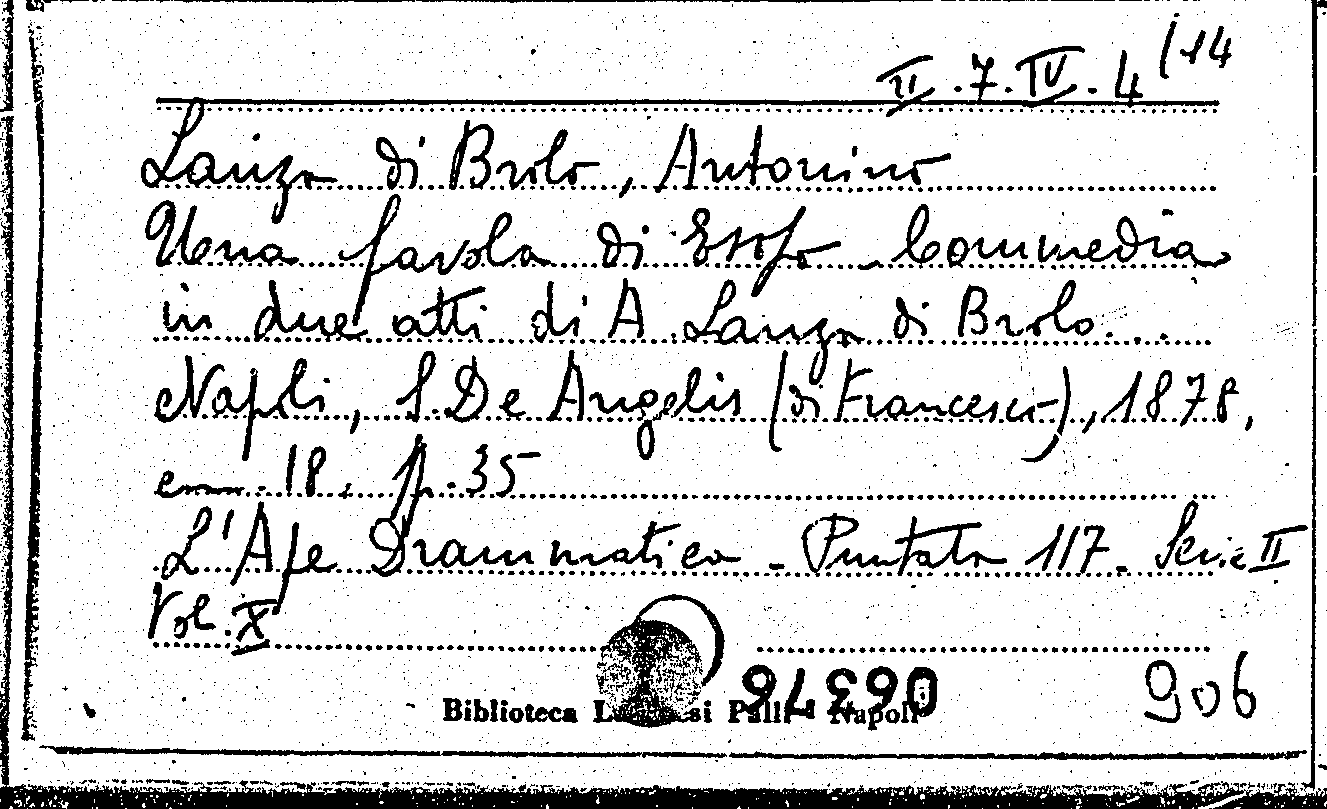 II.7.IV.4/14
Lanza di Brolo, Antonino
Una favola di Esopo. Commedia
in due atti di A. Lanza di Brolo...
Napoli, S. De Angelis (di Francesco), 1878,
cm. 18. p. 35
L'Ape Drammatica - Puntata 117. Serie II
Vol. X
06376
906
Biblioteca si Palli - Napoli